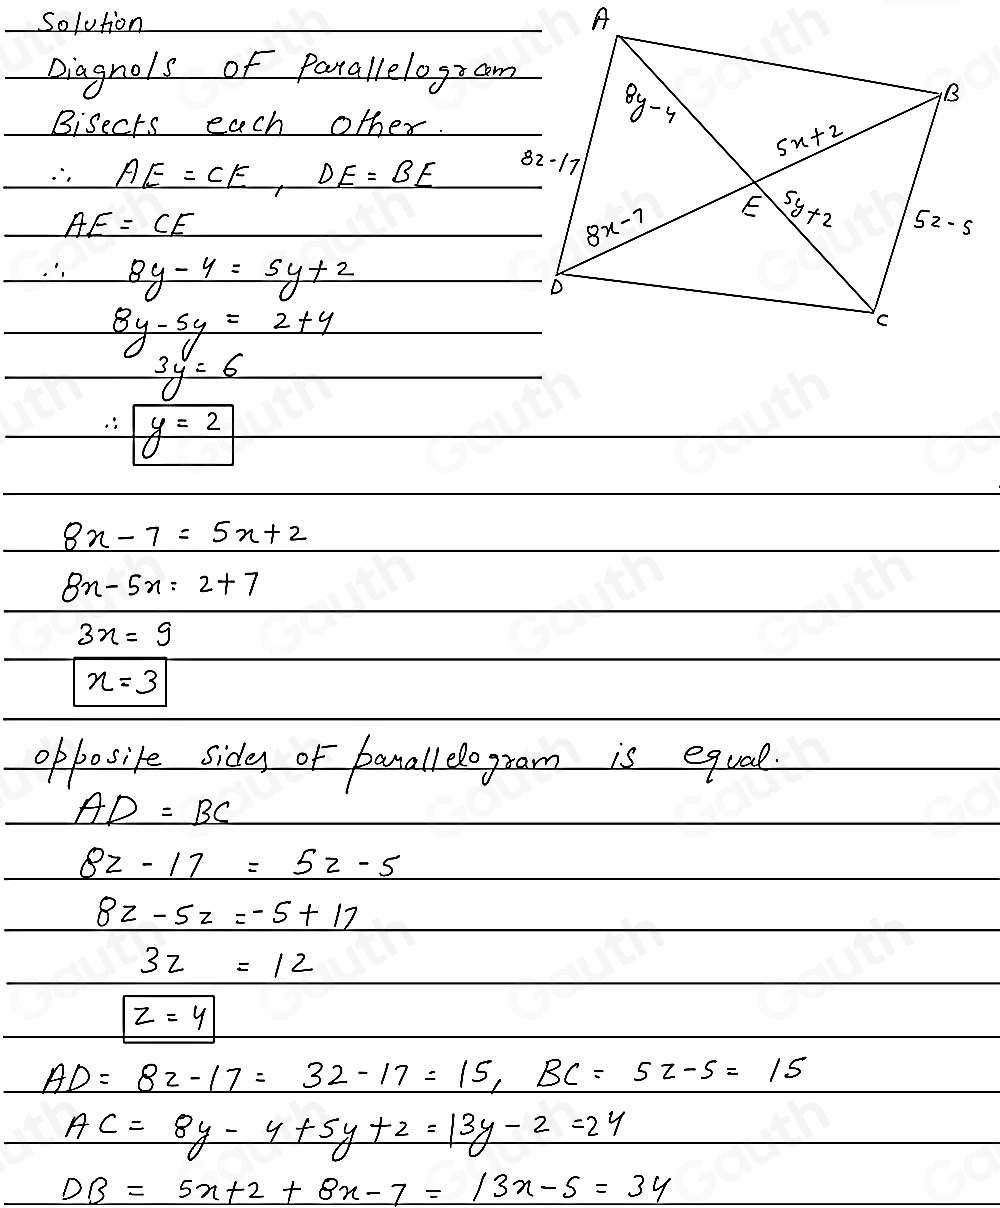 Solution
Diagnols of Parallelogram
Bisects each other.
∴ AE = CE, DE = BE
AE = CE
∴ 8y - 4 = 5y + 2
8y - 5y = 2 + 4
3y = 6
∴ y = 2
A
B
8y - 4
5x + 2
8z - 17
E
5y + 2
8x - 7
5z - 5
D
C
8x - 7 = 5x + 2
8x - 5x = 2 + 7
3x = 9
x = 3
opposite sides of parallelogram is equal.
AD = BC
8z - 17 = 5z - 5
8z - 5z = -5 + 17
3z = 12
z = 4
AD = 8z - 17 = 32 - 17 = 15, BC = 5z - 5 = 15
AC = 8y - 4 + 5y + 2 = 13y - 2 = 24
DB = 5x + 2 + 8x - 7 = 13x - 5 = 34
Gauth